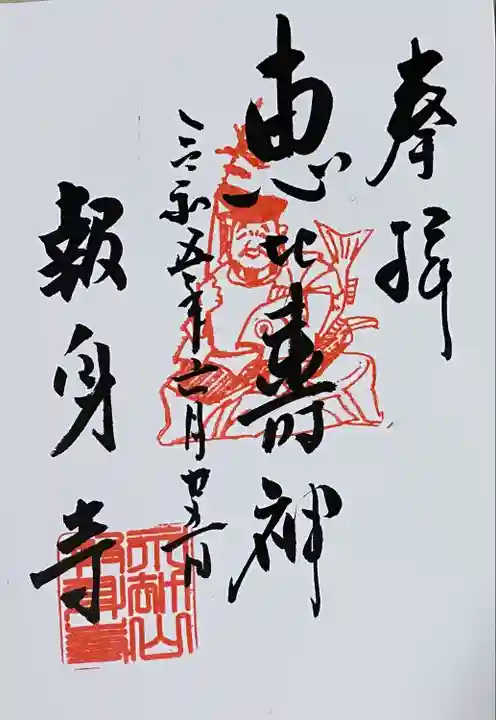 奉拝
恵比寿神
令和五年十二月廿五日
報身寺